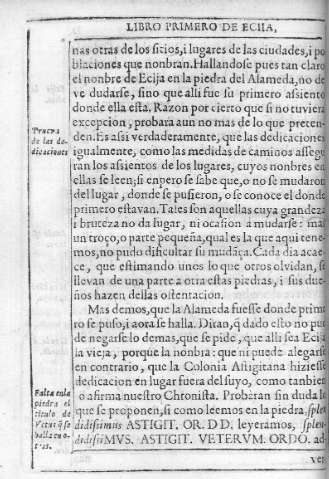 LIBRO PRIMERO DE ECIJA,
nas otras de los sitios, i lugares de las ciudades, i po
blaciones que nonbran. Hallandose pues tan claro
el nonbre de Ecija en la piedra del Alameda, no de
ve dudarse, sino que alli fue su primero assiento
donde ella esta. Razon por cierto que si no tuviera
excepcion, probara aun no mas de lo que preten-
den. Es assi verdaderamente, que las dedicaciones
igualmente, como las medidas de caminos assegu
ran los assientos de los lugares, cuyos nonbres en
ellas se leen; si enpero se sabe que, o no se mudaron
del lugar, donde se pusieron, o se conoce el donde
primero estavan. Tales son aquellas cuya grandeza
i bruteza no da lugar, ni ocasion a mudarse: mas
un troço, o parte pequeña, qual es la que aqui tene-
mos, no pudo dificultar su mudãça. Cada dia acae-
ce, que estimando unos lo que otros olvidan, se
llevan de una parte a otra estas piedras, i sus due-
ños hazen dellas ostentacion.
Mas demos, que la Alameda fuesse donde prime
ro se puso, i aora se halla. Diran, q̃ dado esto no pue
de negarse lo demas, que se pide, que alli sea Ecija
la vieja, porque la nonbra: que ni puede alegarse
en contrario, que la Colonia Astigitana hiziesse
dedicacion en lugar fuera del suyo, como tanbien
o afirma nuestro Chronista. Probaran sin duda lo
que se proponen, si como leemos en la piedra, splen
didissimus ASTIGIT. OR. DD. leyeramos, splen-
didissiMUS. ASTIGIT. VETERVM. ORDO. ad-
ver
Prueva
de las de-
dicaciones
Falta en la
piedra el
titulo de
Vetus q̃ se
halla en o-
tras.